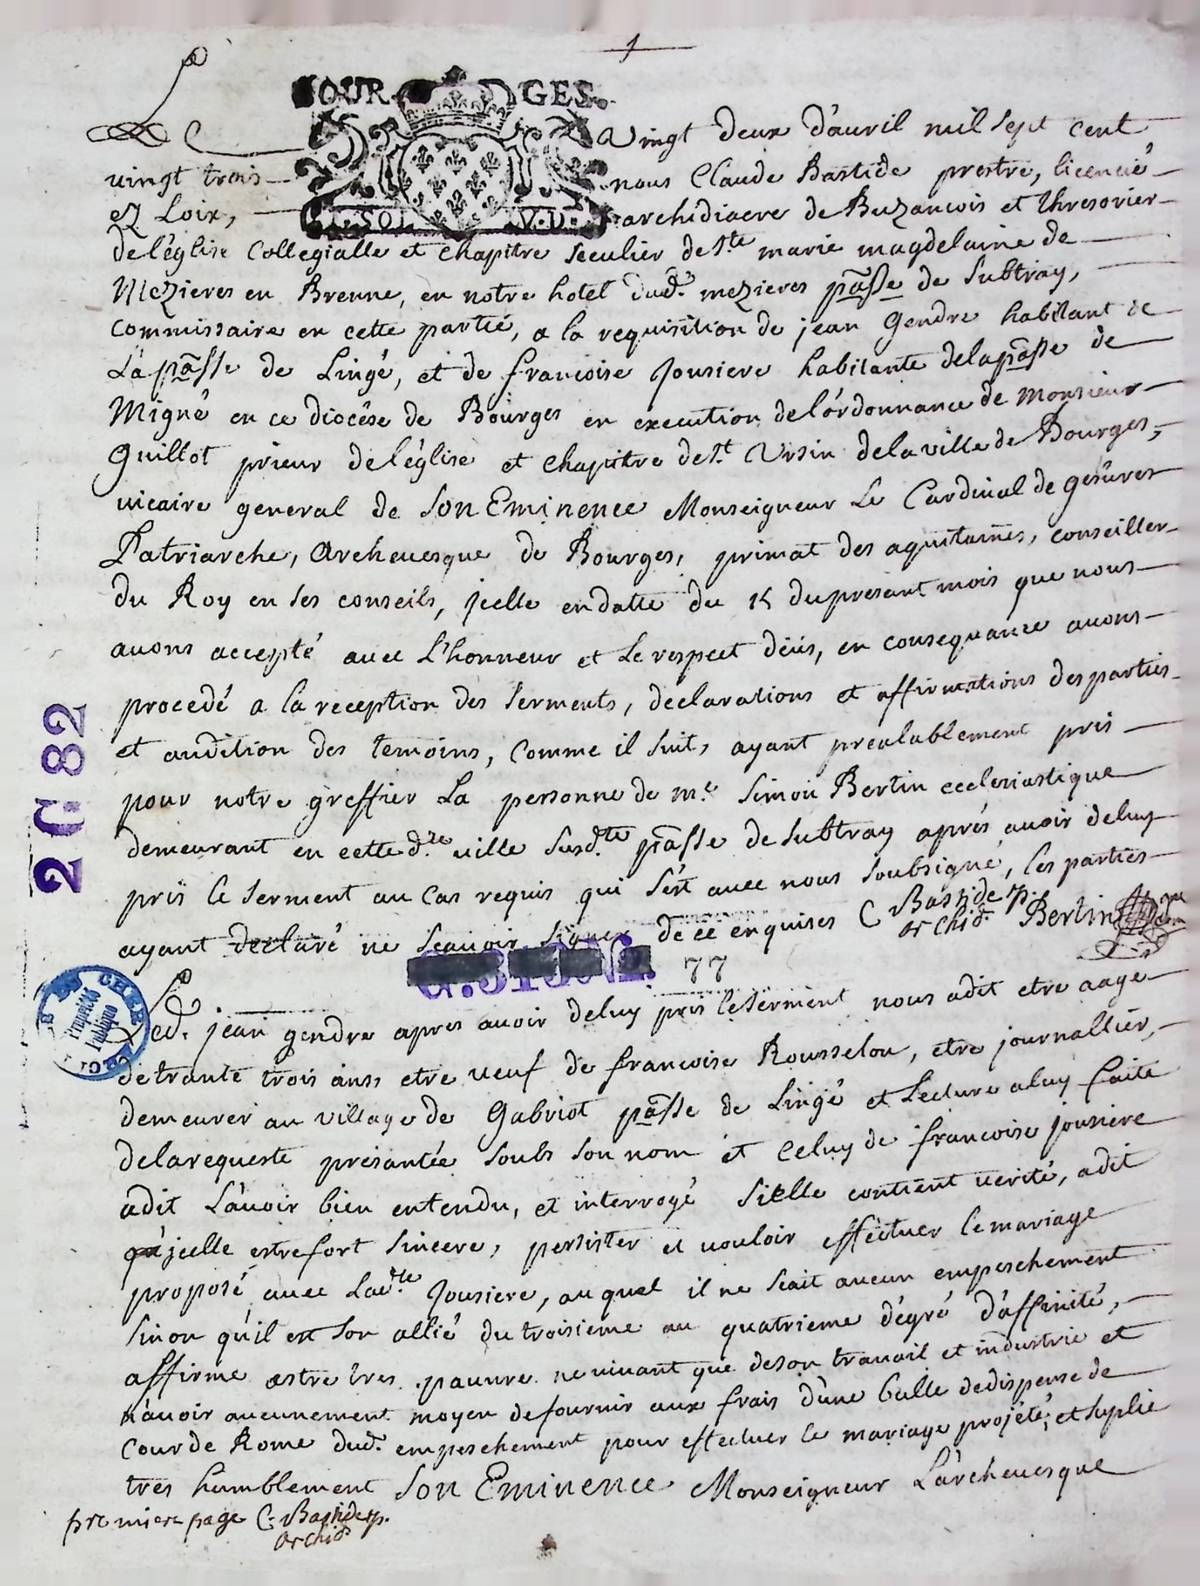 1
BOURGES.
Vingt deux d'auril mil sept cent
vingt trois nous Claude Bastide prestre, licencié
ez Loix, archidiacre de Buzancois et thresorier
SOL V.D.
de l'église Collegialle et chapitre seculier de Ste marie magdelaine de
Mezieres en Brenne, en notre hotel dud. mezieres passe de Subtray,
commissaire en cette partie, a la requisition de jean Gendre habitant de
La passe de Lingé, et de francoise Jousiere habitante de la passe de
Migné en ce diocése de Bourges en execution de l'ordonnance de Monsieur
Guillot prieur de l'église et chapitre de St. Ursin de la ville de Bourges,
vicaire general de Son Eminence Monseigneur Le Cardinal de gesures
Patriarche, Archeuesque de Bourges, primat des aquitaines, conseiller
du Roy en ses conseils, jcelle en datte du 15 du présant mois que nous
auons accepté auec L'honneur et Le respect deüs, en consequance auons
procedé a la reception des serments, declarations et affirmations des parties
et audition des temoins, comme il suit, ayant prealablement pris
pour notre greffier La personne de me. Simon Bertin ecclesiastique
demeurant en cette d.te ville susd.te passe de Subtray aprés auoir de luy
pris le serment au cas requis qui s'est auec nous soubsigné, les parties
ayant declaré ne scauoir signer de ce enquises C Bastide p.
archid. Bertin
77
2 G 82
CHER
Propriété Publique
Led. jean gendre apres auoir de luy pris le serment nous a dit etre aage
de trante trois ans etre ueuf de francoise Rousselou, etre journallier,
demeurer au village de Gabriot passe de Lingé et Lecture a luy faite
de la requeste présantée soubs son nom et celuy de francoise jousiere
a dit L'auoir bien entendu, et interrogé si elle contient uerité, a dit
qu'jcelle estre fort sincere, persister et uouloir effectuer le mariage
proposé auec Lad.te Jousiere, auquel il ne scait aucun empeschement
sinon qu'il est son allié du troisieme au quatrieme dégré d'affinité,
affirme estre tres pauure ne uiuant que de son trauail et industrie et
n'auoir aucunement moyen de fournir aux frais d'une bulle de dispense de
Cour de Rome dud. empeschement pour effectuer le mariage projeté, et suplie
tres humblement Son Eminence Monseigneur L'archeuesque
premiere page C. Bastide p.
archid